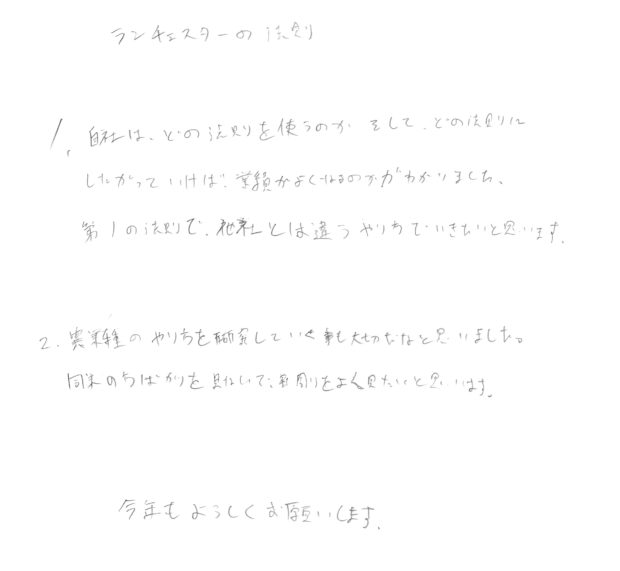 ランチェスターの法則
1、自社は、どの法則を使うのか そして、どの法則に
したがっていけば、業績がよくなるのかがわかりました。
第1の法則で、他社とは違うやり方でいきたいと思います。
2. 異業種のやり方を していく事も大切だなと思いました。
同業のちばかりを見ないで、 りをよく見たいと思います。
今年もよろしくお願いします。